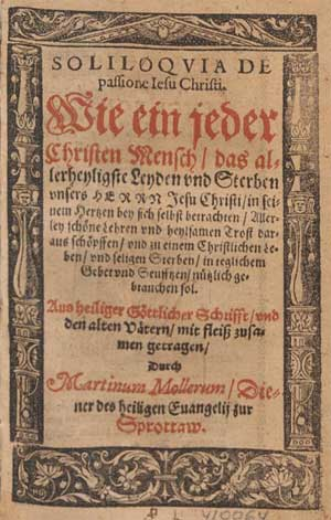 SOLILOQVIA DE
passione Iesu Christi.
Wie ein jeder
Christen Mensch / das al-
lerheyligste Leyden vnd Sterben
vnsers HERRN Jesu Christi / in sei-
nem Hertzen bey sich selbst betrachten / Aller-
ley schöne Lehren vnd heylsamen Trost dar-
aus schöpffen / vnd zu einem Christlichen Le-
ben / vnd seligen Sterben / in teglichem
Gebet vnd Seufftzen / nützlich ge-
brauchen sol.
Aus heiliger Göttlicher Schrifft / vnd
den alten Vätern / mit fleiß zusa-
men getragen /
Durch
Martinum Mollerum / Die-
ner des heiligen Euangelij zur
Sprottaw.